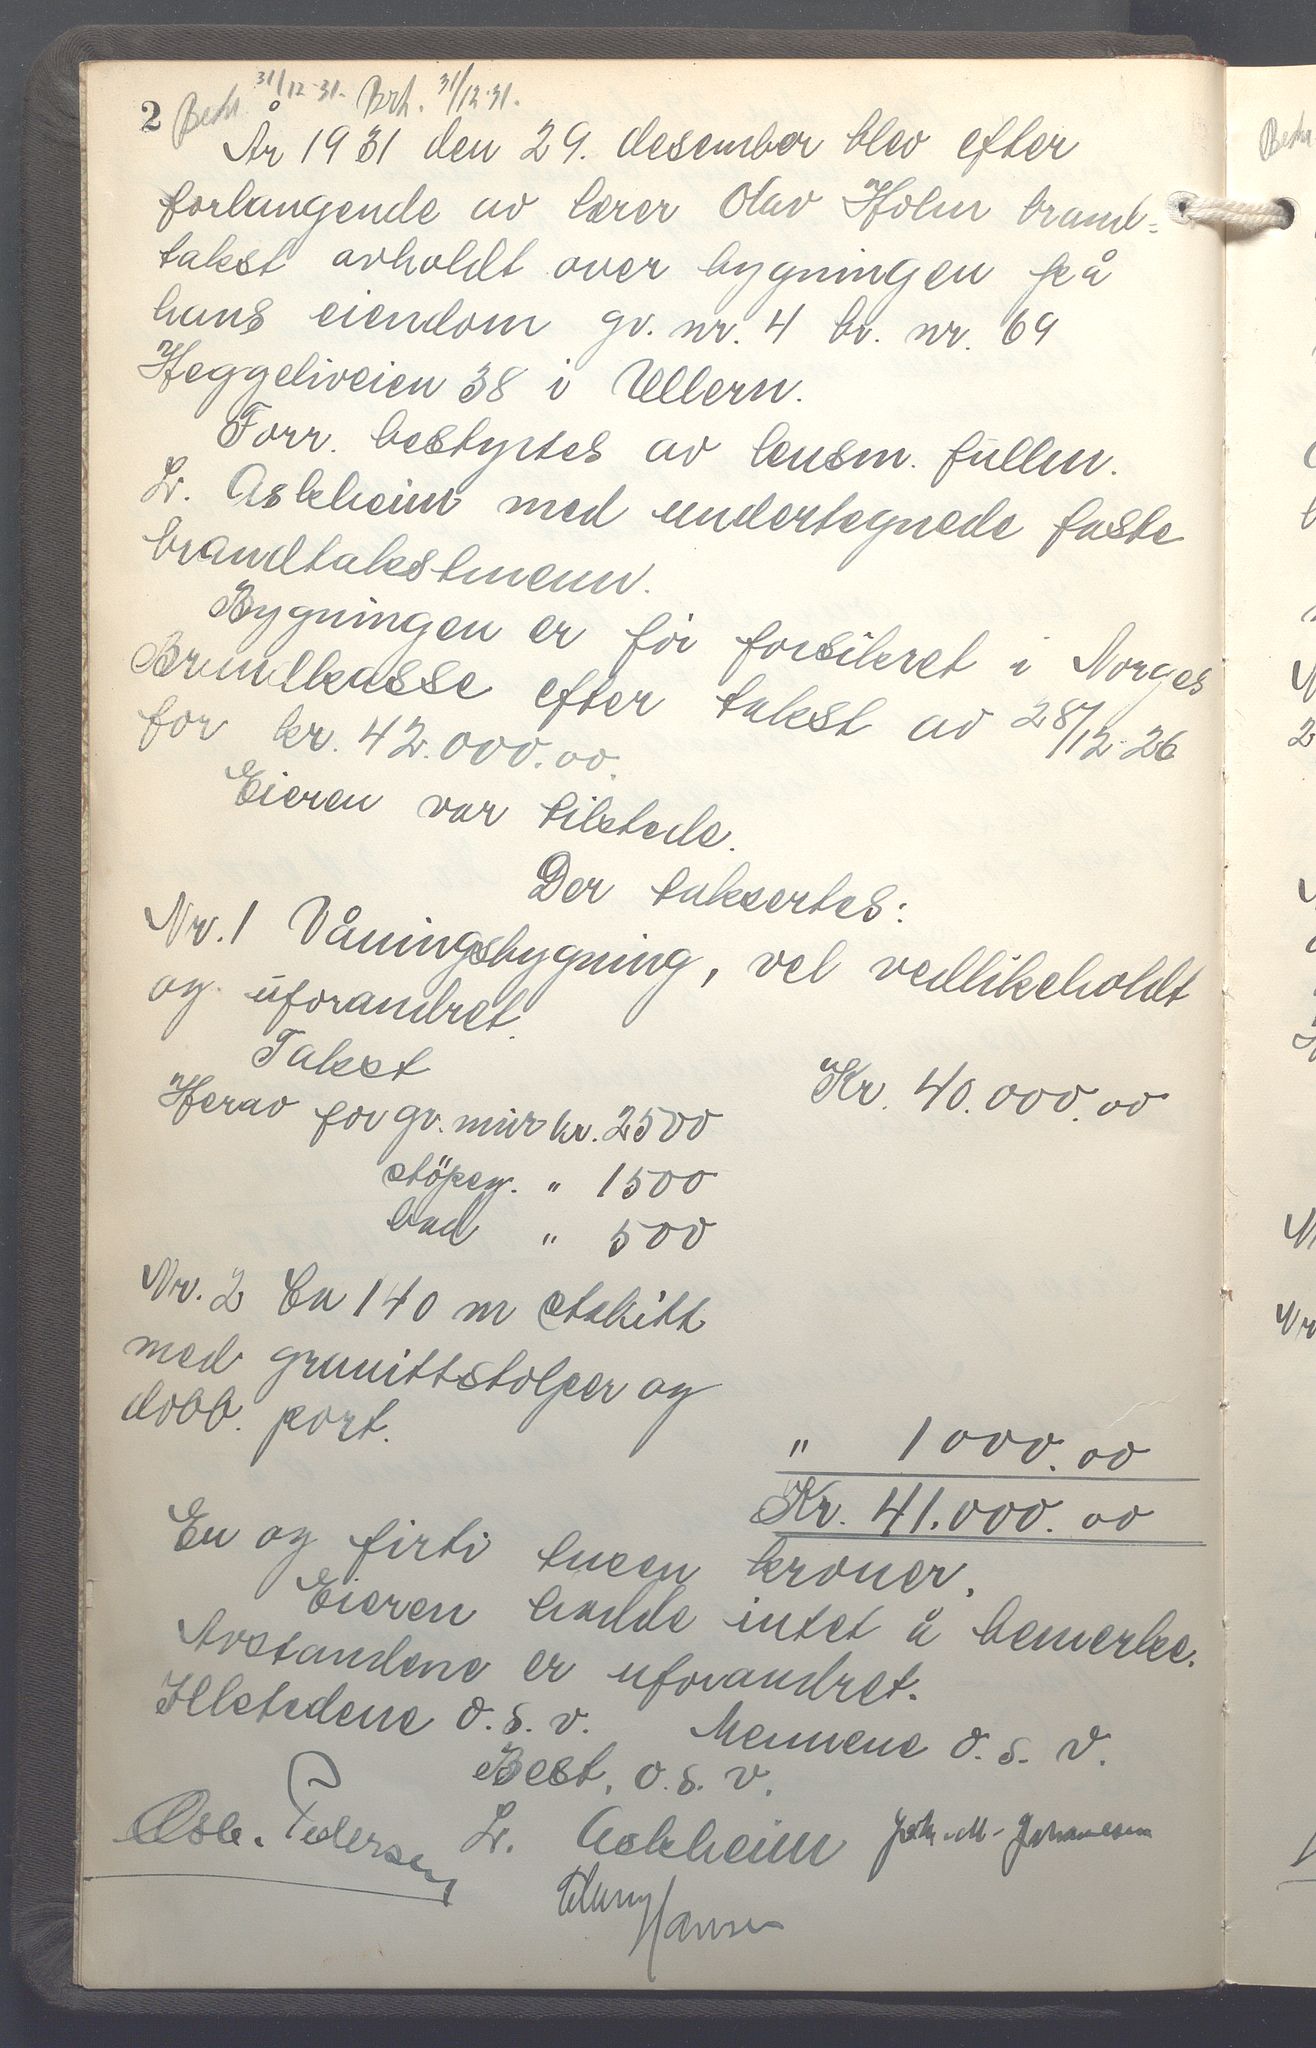 2 Besk 31/12-31. Brh. 31/12-31.
År 1931 den 29. desember blev efter
forlangende av lærer Olav Holm brand=
takst avholdt over bygningen på
hans eiendom gr. nr. 4 br. nr. 69
Heggeliveien 38 i Ullern.
Forr. bestyrtes av lensm. fullm.
Lr. Askheim med undertegnede faste
brandtakstmenn.
Bygningen er för forsikret i Norges
Brandkasse efter takst av 28/12-26
for kr. 42.000.00.
Eieren var tilstede.
Der taksertes:
Nr. 1 Våningsbygning, vel vedlikeholdt
og uforandret.
Takst Kr. 40.000.00
Herav for gr. mur kr. 2500
støpeg. " 1500
bad " 500
Nr. 2 Ca 140 m stakitt
med granittstolper og
dobb. port. " 1000.00
Kr. 41.000.00
En og firti tusen kroner.
Eieren hadde intet å bemerke.
Avstandene er uforandret.
Ildstedene o.s.v. Mennene o.s.v.
Best. o.s.v.
Osc. Pedersen Lr. Askheim Joh. M. Johannesen
Hansen
Besk